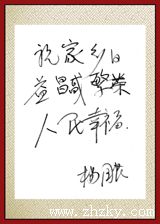 祝家乡日
益昌盛繁荣
人民幸福.
www.zhzky.com